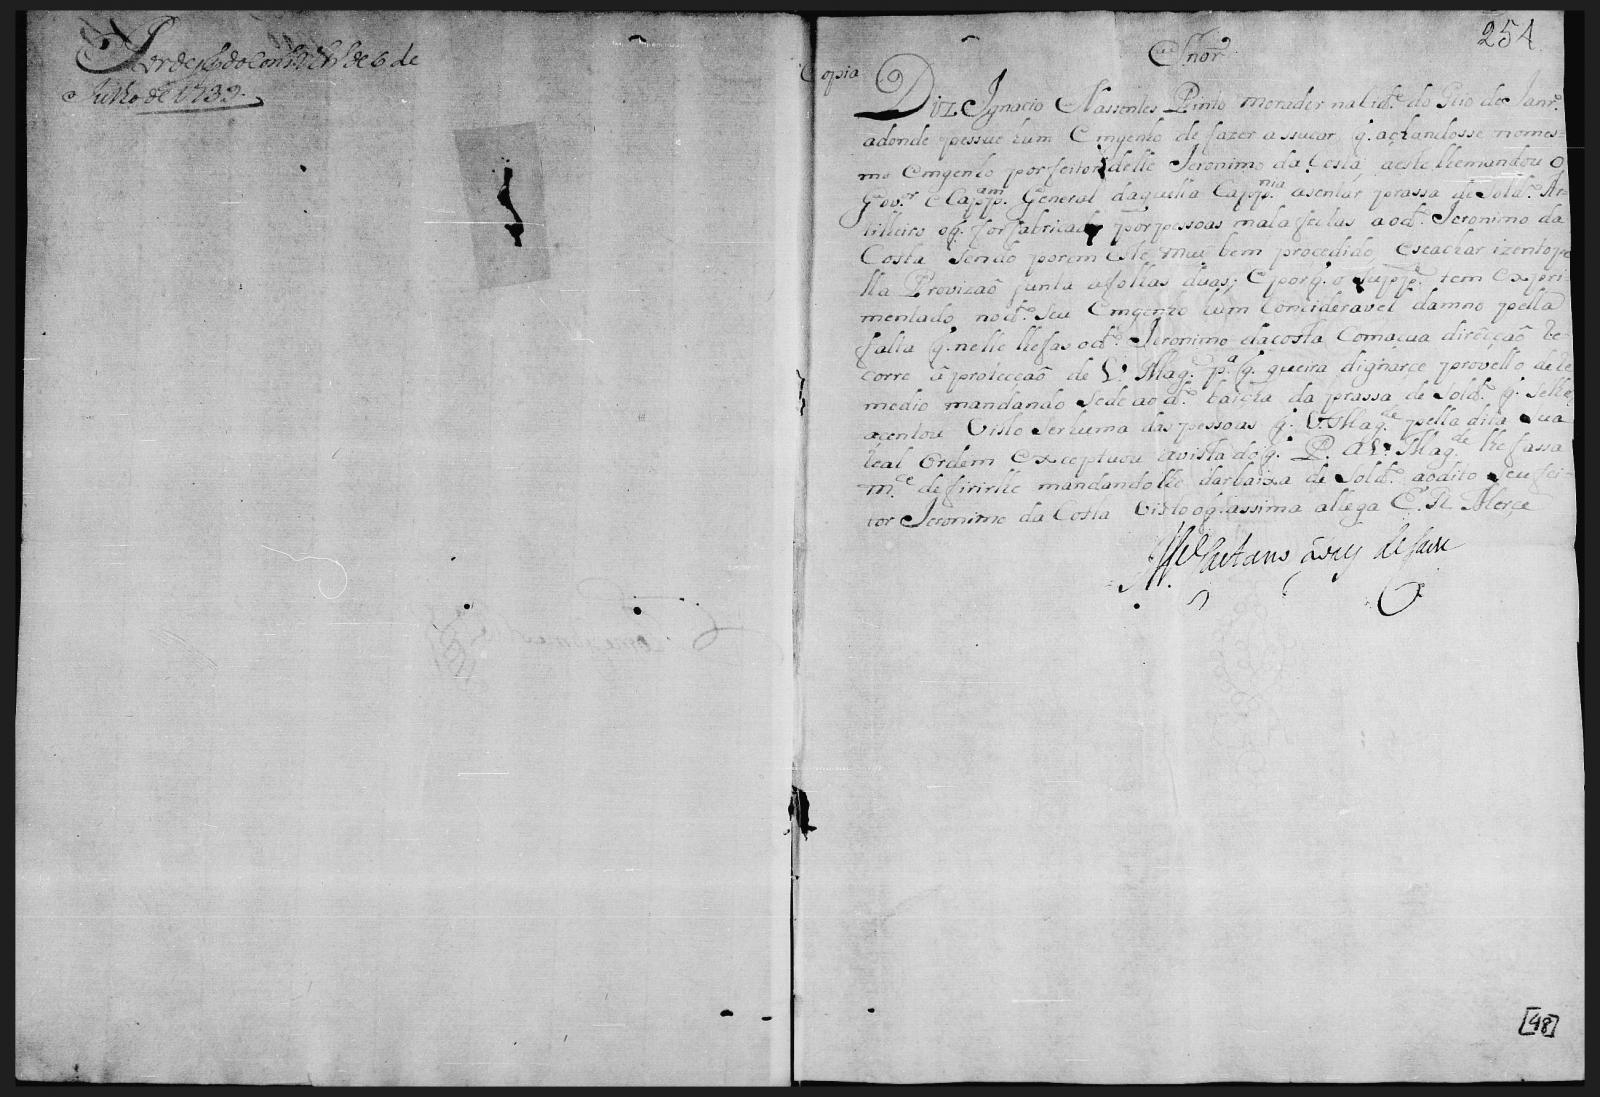 Por desp.º do Cons.º Ultr.º de 6 de
Julho de 1739.
254
Snõr
Copia
Diz Ignacio Nassentes Pinto morador na Cid.e do Rio de Janr.º
adonde pessue hum Emgenho de fazer assucar q. achandosse nomes=
mo Emgenho por feitor delle Jeronimo da Costa, a este lhe mandou o
Gov.or e Capp.am General daquella Capp.nia asentar prassa de Sold.º Ar=
tilheiro o q. foi fabricado por pessoas mala fectas ao d.º Jeronimo da
Costa sendo porem este mui bem procedido, e se achar izento pe
lla Provizaõ junta a folhas duas; E porq. o Supp.e tem expri=
mentado no d.º seu Emgenho hum Concideravel damno pella
falta q. nelle lhe fas o d.º Jeronimo da Costa Com a sua direiçaõ re=
corre â protecçaõ de V. Mag.e p.a q. queira dignarçe provello de re
medio mandando se de ao d.º baicha da prassa de Sold.º q. se lhe
açentou Visto ser huma das pessoas q. V. Mag.de pella dita sua
Real Ordem exceptuou avista do q.
P. a V. Mag.de lhe fassa
m.ce defirirlhe mandandolhe dar baixa de Sold.º ao dito seu fei=
tor Jeronimo da Costa Visto o q. assima allega E. R. Merçe
M.el Caetano Lopes de Lavre
[48]